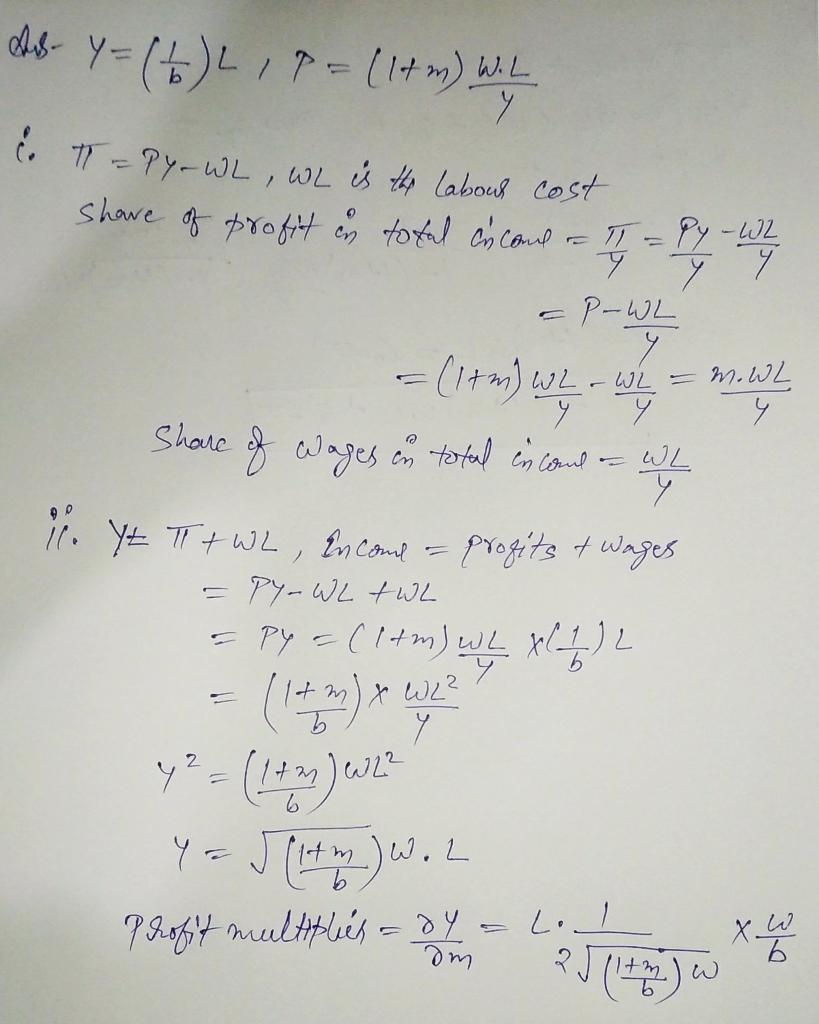 Ans- Y = (1/b) L , P = (1+m) W.L/Y
i. π = PY-WL , WL is the labour cost
Share of profit in total income = π/Y = PY/Y - WL/Y
= P - WL/Y
= (1+m) WL/Y - WL/Y = m.WL/Y
Share of wages in total income = WL/Y
ii. Y = π + WL , Income = profits + wages
= PY - WL + WL
= PY = (1+m) WL/Y x (1/b) L
= (1+m/b) x WL²/Y
Y² = (1+m/b) WL²
Y = √(1+m/b) W . L
Profit multiplier = ∂Y/∂m = L . 1/2√(1+m/b) W x W/b